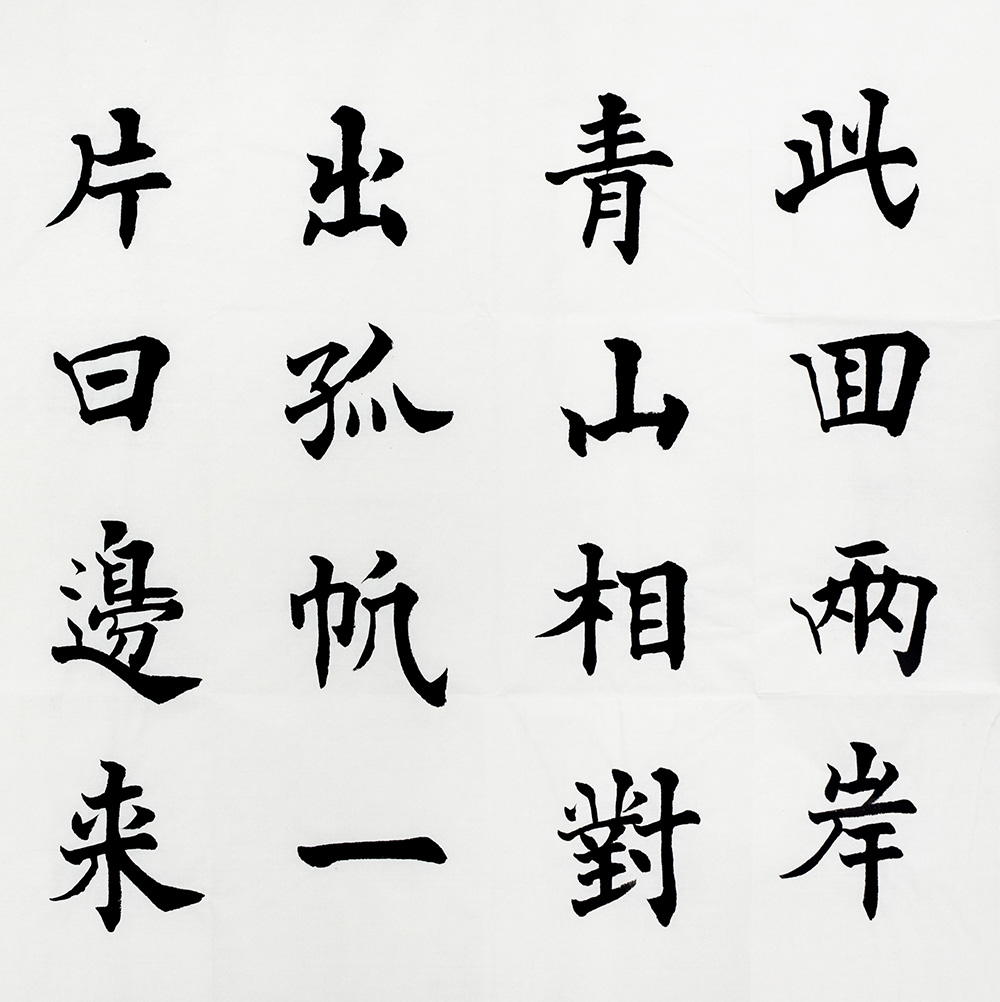 此回兩岸
青山相對
出孤帆一
片日邊來